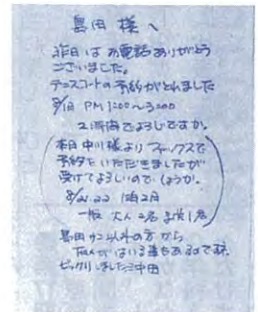 島田 様へ
昨日は お電話ありがとう
ございました。
テニスコートの予約がとれました
8/18 PM 1:00〜3:00
2時間でよろしいですか。
本日 中川様より ファックスで
予約を いただきましたが
受けてよろしいのでしょうか。
8/21.22 1泊2日
一般 大人 2名 1名
島田サン以外の方から
はいる事もあるのですネ
ビックリしました 中田